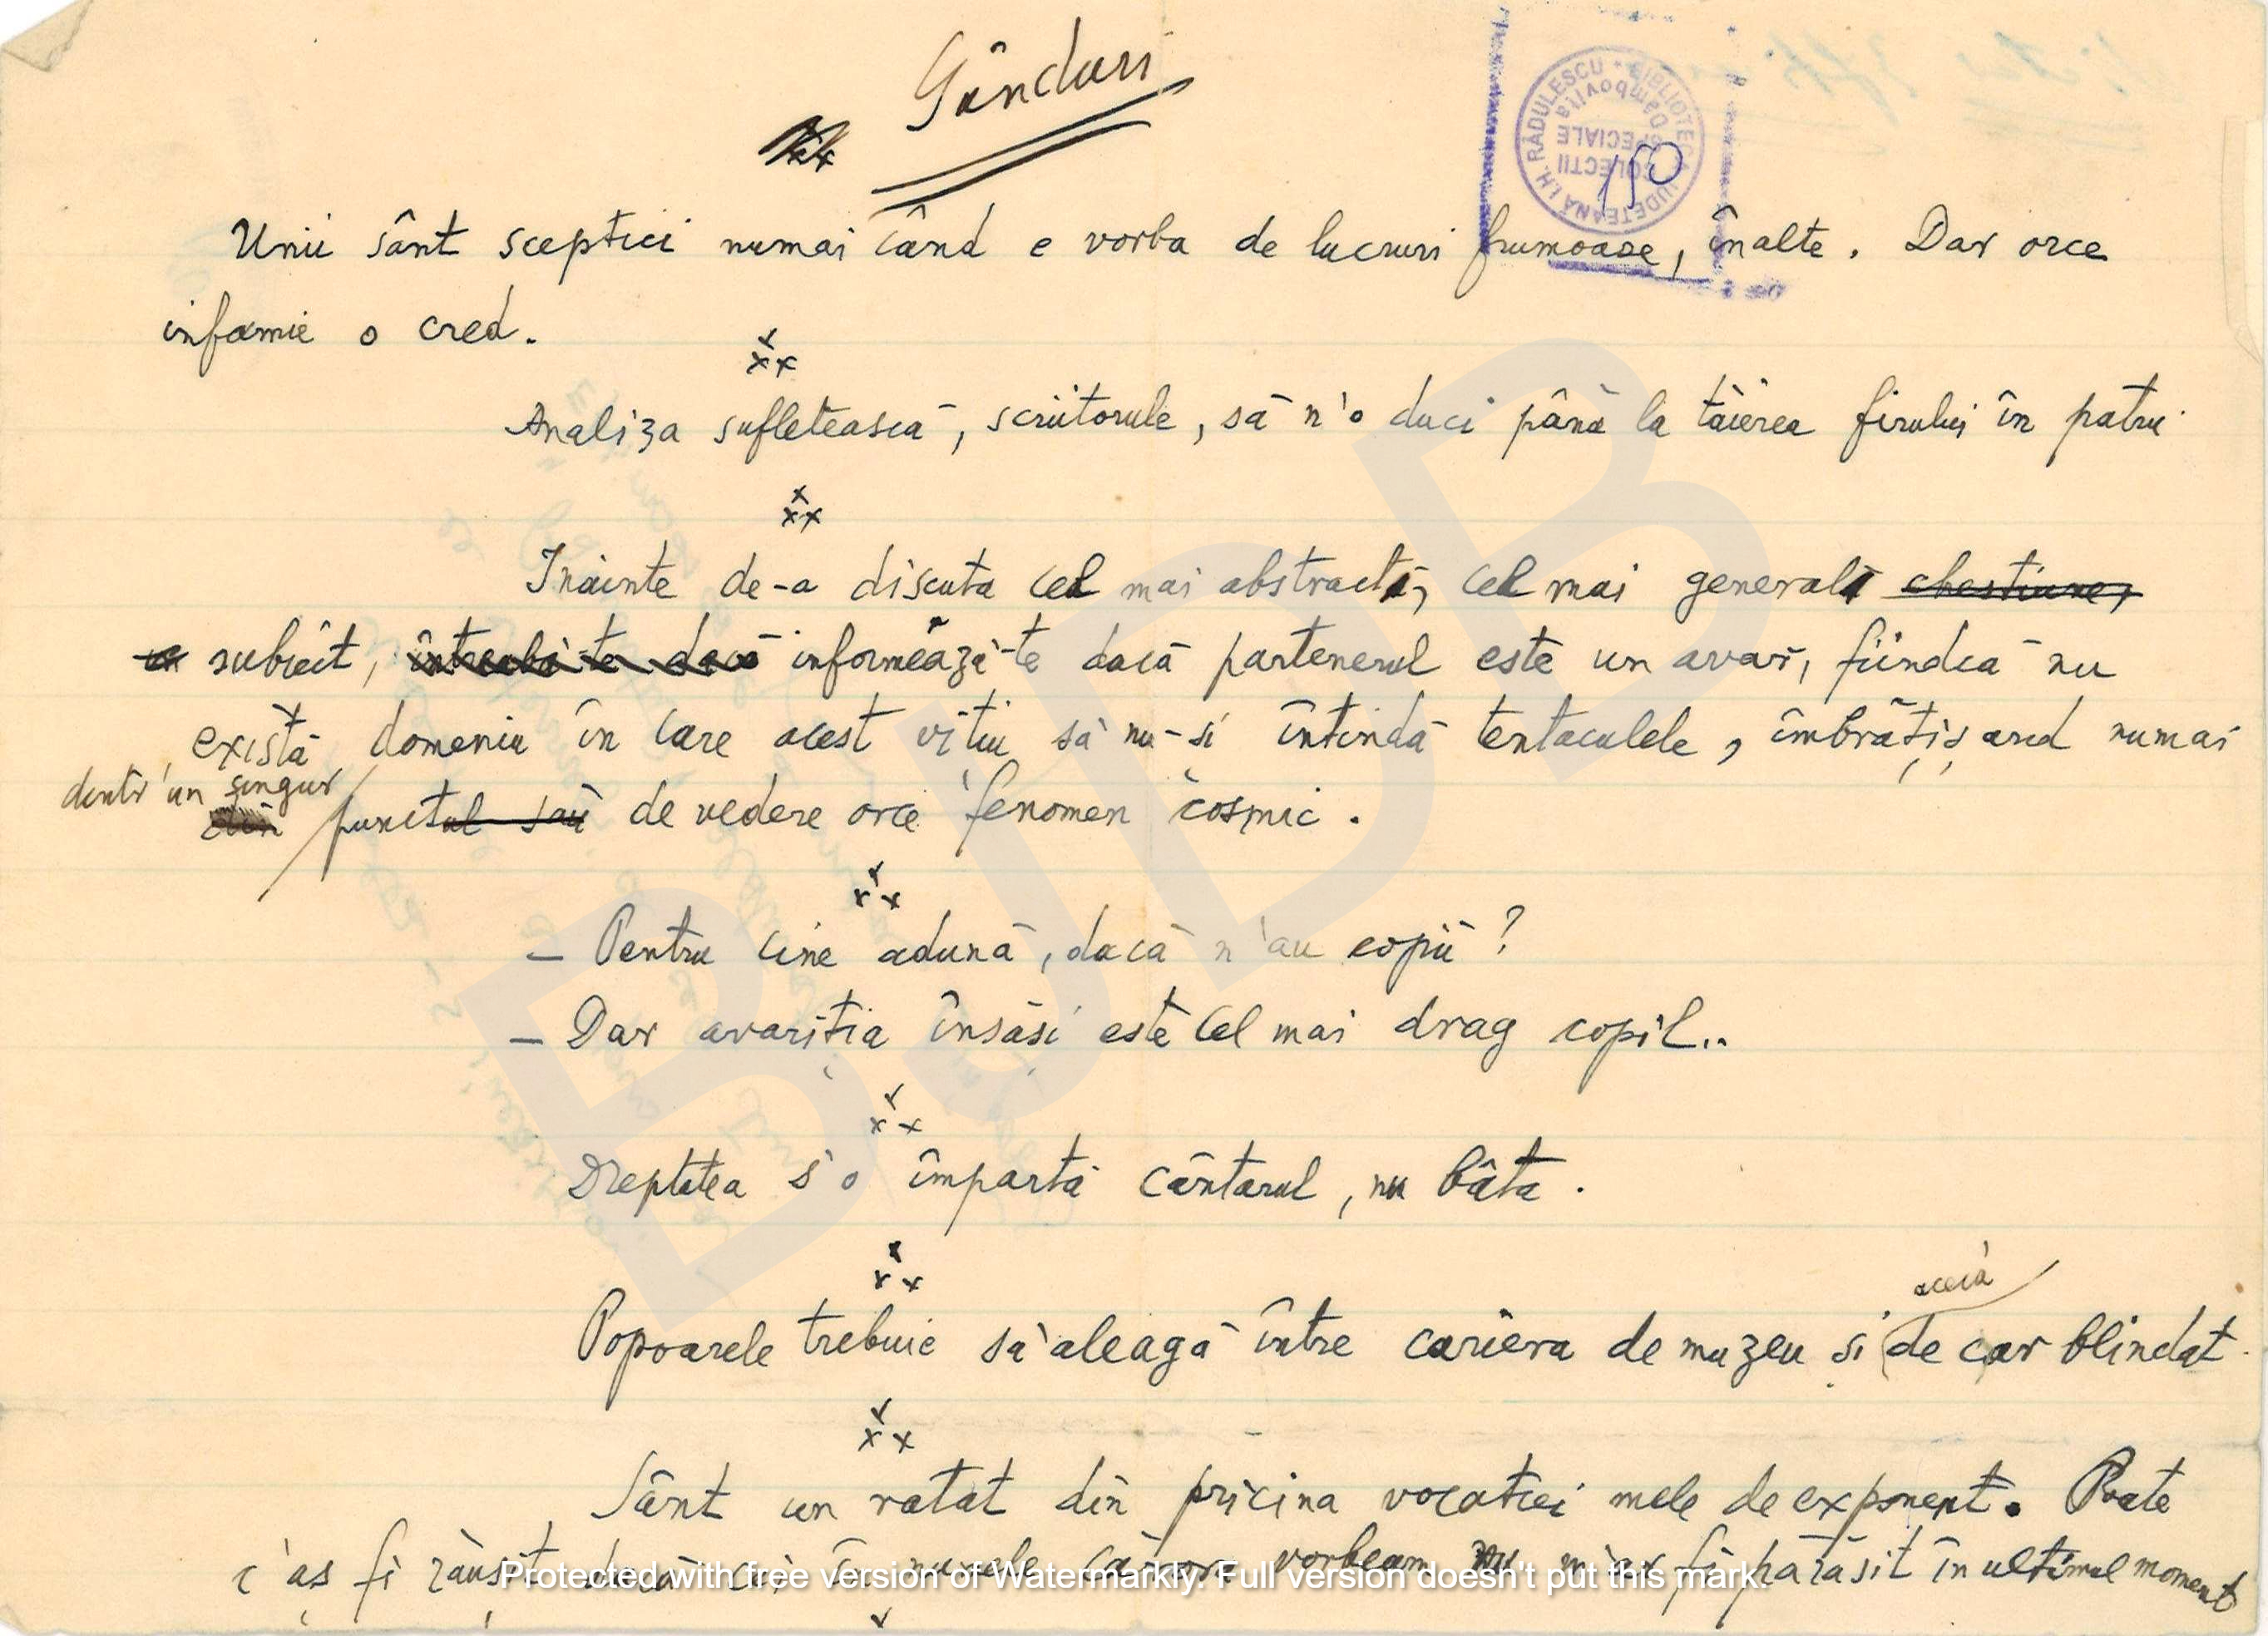 Gânduri
BIBLIOTECA JUDEȚEANĂ I.H. RĂDULESCU
Dâmbovița
COLECȚII SPECIALE
150
Unii sânt sceptici numai când e vorba de lucruri frumoase, înalte. Dar orce
infamie o cred.
x x x
Analiza sufletească, scriitorule, să n'o duci până la tăierea firului în patru
x x x
Inainte de-a discuta cel mai abstract, cel mai general chestiune,
subiect, întreabă-te dacă informează-te dacă partenerul este un avar, fiindcă nu
există domeniu în care acest vițiu să nu-si întindă tentaculele, îmbrățișand numai
dintr'un singur
din punctul său de vedere orce fenomen cosmic.
x x x
– Pentru cine adună, dacă n'au copii?
– Dar avariția însăși este cel mai drag copil..
x x x
Dreptatea s'o împartă cântarul, nu bâta.
x x x
aceia
Popoarele trebuie să aleagă între cariera de muzeu și de car blindat.
x x x
Sânt un ratat din pricina vocatiei mele de exponent. Poate
c'aș fi răușit dacă cei în numele cărora vorbeam nu m'ar fi părăsit în ultimul moment
BJDB
Protected with free version of Watermarkly. Full version doesn't put this mark.